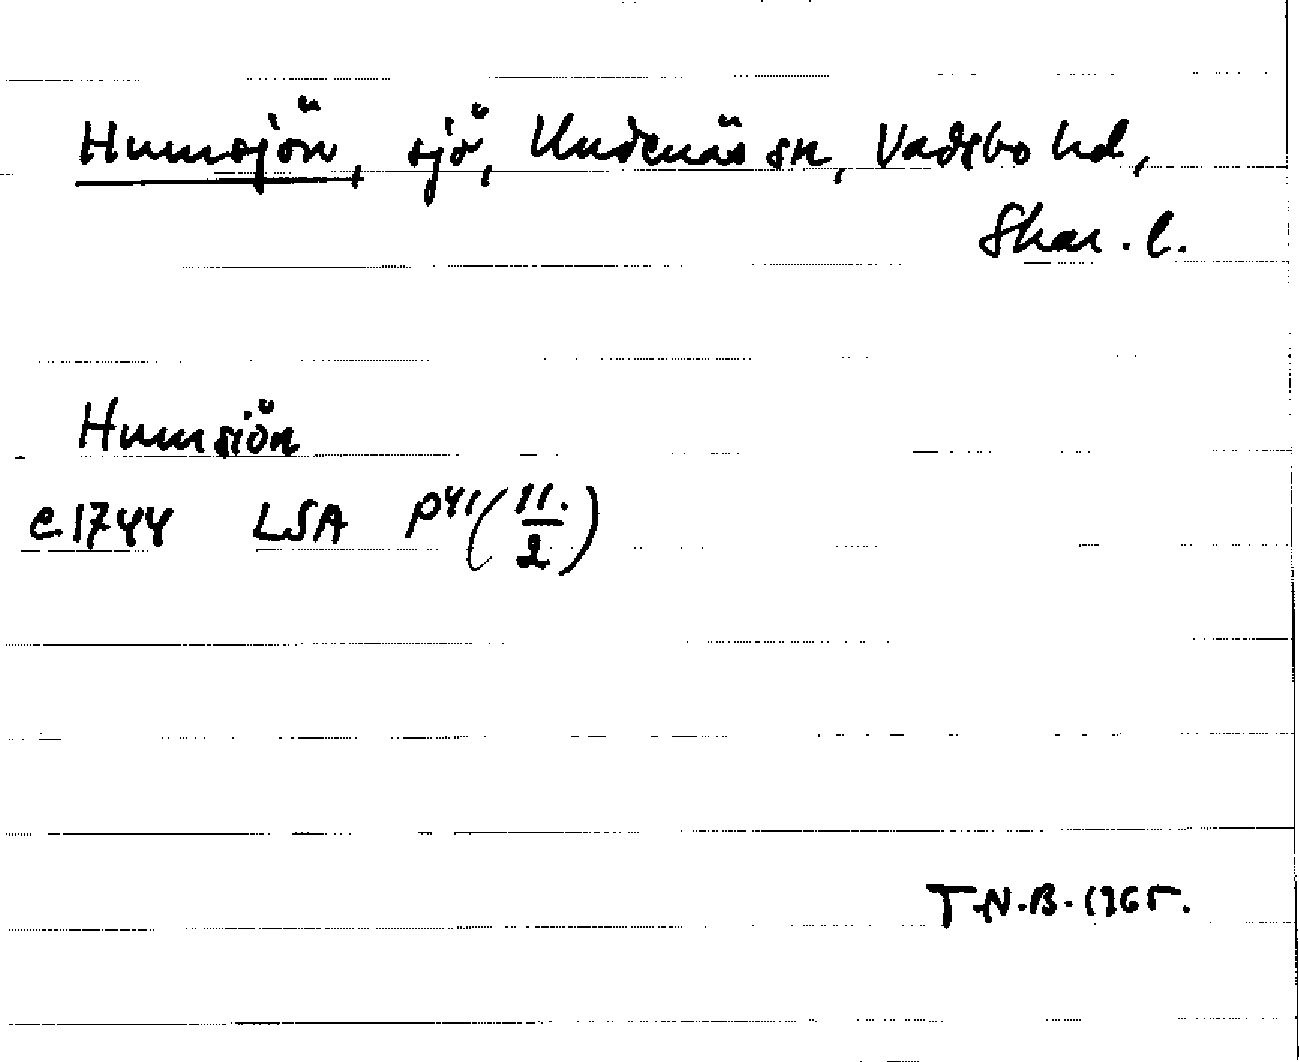 Humsjön, sjö, Undenäs sn, Vadsbo hd,
Skar. l.
Humsiön
c. 1744 LSA P41 (11./2)
T.N.B. 1965.